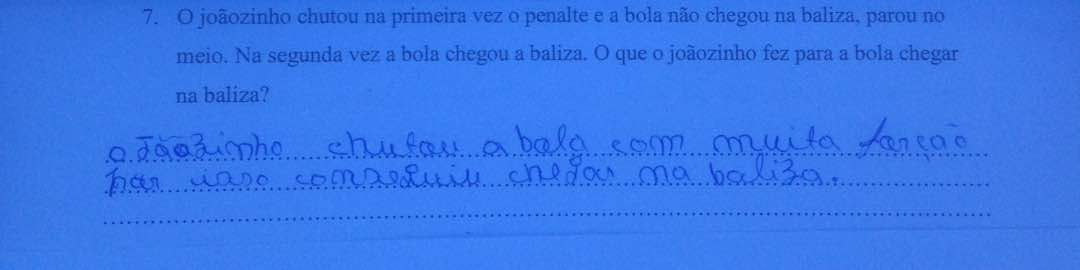 7. O joãozinho chutou na primeira vez o penalte e a bola não chegou na baliza, parou no
meio. Na segunda vez a bola chegou a baliza. O que o joãozinho fez para a bola chegar
na baliza?
o Jãozinho chutou a bola com muita forção
por isso conseguiu chegar na baliza.